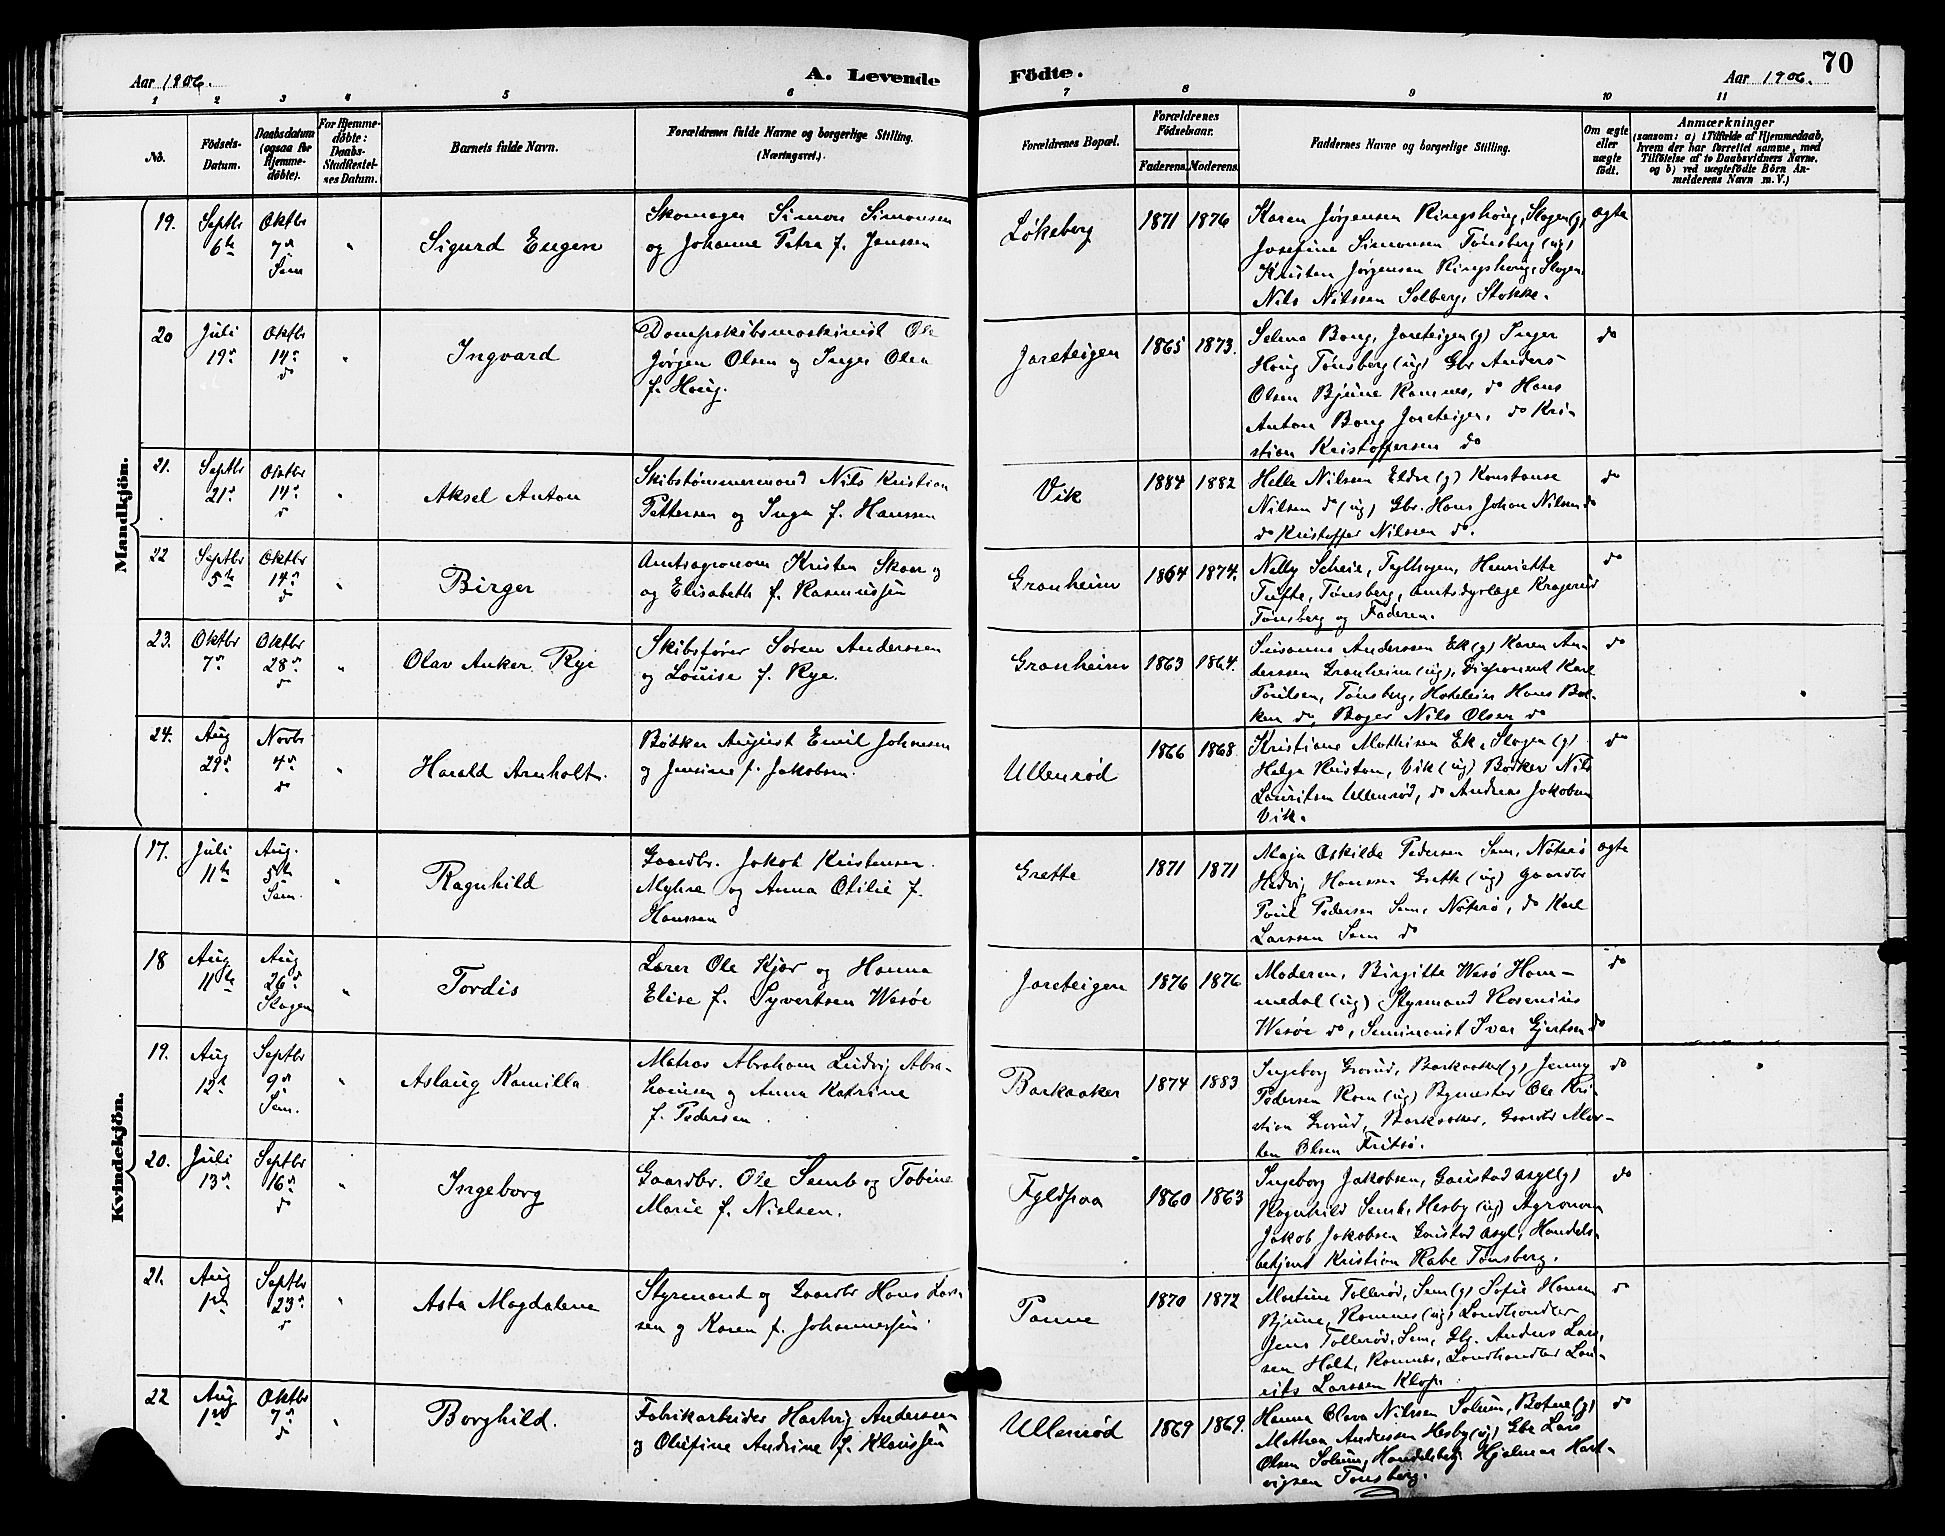 70
Aar 1906.
A. Levende
Födte.
Aar 1906.
1 2 3 4 5 6 7 8 9 10 11
No.
Födsels-
Datum.
Daabsdatum
(ogsaa for
Hjemme-
döbte).
For Hjemme-
döbte:
Daabs-
Stadfæstel-
ses Datum.
Barnets fulde Navn.
Forældrenes fulde Navne og borgerlige Stilling.
(Næringsvei.)
Forældrenes Bopæl.
Forældrenes
Födselsaar.
Faderens. Moderens.
Faddernes Navne og borgerlige Stilling.
Om ægte
eller
uægte
födt.
Anmærkninger
(saasom: a) i Tilfælde af Hjemmedaab,
hvem der har forrettet samme, med
Tilföielse af to Daabsvidners Navne,
og b) ved uægtefödte Börn An-
melderens Navn m. V.)
Mandkjön.
19.
Septbr
6te
Oktbr
7de
Sem
"
Sigurd Eugen
Skomager Simon Simonsen
og Johanne Petra f. Jenssen
Løkeberg
1871 1876
Karen Jørgensen Ringshoug, Slagen (g)
Josefine Simonsen Tønsberg (ug)
Kristen Jørgensen Ringshoug, Slagen
Nils Nilssen Solberg, Stokke.
ægte
20
Juli
19de
Oktbr
14de
do
"
Ingvard
Dampskibsmaskinist Ole
Jørgen Olsen og Inger Olea
f. Houg.
Jareteigen
1865 1873.
Selma Bang, Jareteigen (g) Inger
Houg Tønsberg (ug) Gbr Anders
Olsen Bjune Ramnes, do Hans
Anton Bang Jareteigen, do Kri-
stian Kristoffersen do
do
21.
Septbr
21de
Oktbr
14de
d
"
Aksel Anton
Skibstømmermand Nils Kristian
Pettersen og Inga f. Hanssen
Vik
1884 1882
Helle Nilsen Eldre (g) Konstanse
Nilsen do (ug) Gbr. Hans Johan Nilsen do
do Kristoffer Nilssen do.
do
22
Septbr
5te
Oktbr
14de
do
"
Birger
Amtsagronom Kristen Skaar og
og Elisabeth f. Rasmussen
Granheim
1864 1874.
Nelly Scheie, Fylhagen, Henriette
Tufte, Tønsberg, Amtsdyrlæge Kragerud
Tønsberg og Faderen.
do
23.
Oktbr
7de
Oktbr
28de
do
"
Olav Anker Rye
Skibsfører Søren Anderssen
og Louise f. Rye.
Granheim
1863 1864.
Susanne Anderssen Ek (g) Karen An-
derssen Granheim (ug), Disponent Karl
Poulsen, Tønsberg, Hoteleier Hans Bak-
ken do, Bager Nils Olsen do
do
24.
Aug
29de
Novbr
4de
do
"
Harald Arnholt.
Bødker August Emil Johansen
og Jensine f. Jakobsen.
Ullenrød
1866 1868
Kristiane Mathisen Ek, Slagen (g)
Helga Kristan, Vik (ug) Bødker Nils
Lauritsen Ullenrød, do Andreas Jakobsen
Vik.
do
Kvindekjön.
17.
Juli
11te
Aug.
5te
Sem.
"
Ragnhild
Gaardbr. Jakob Kristensen
Myhre og Anna Otilie f.
Hanssen
Grette
1871 1871
Maja Oskilde Pedersen Sem, Nøterø
Hedvig Hanssen Grette (ug) Gaardbr
Poul Pedersen Sem, Nøterø, do Karl
Larssen Sem do
ægte
18
Aug
11te
Aug
26de
Slagen
"
Tordis
Lærer Ole Kjær og Hanna
Elise f. Syvertsen Wesøe
Jareteigen
1876 1876
Moderen, Birgitte Wesø Hom-
medal (ug) Styrmand Rosenius
Wesøe do, Seminarist Ivar Gjertsen do
do
19.
Aug
12te
Septbr
9de
Sem.
"
Aslaug Kamilla
Matros Abraham Ludvig Abra-
hamsen og Anna Katrine
f. Pedersen
Barkaaker
1874 1883
Ingeborg Grorud, Barkaaker (g) Jenny
Pedersen Rom (ug) Bymester Ole Kri-
stian Grorud, Barkaaker, Gaardbr Mor-
ten Olsen Fritsø.
do
20.
Juli
13de
Septbr
16de
do
"
Ingeborg
Gaardbr. Ole Semb og Tobine
Marie f. Nielsen.
Fyldpaa
1860 1863
Ingeborg Jakobsen, Gaustad asyl (g)
Ragnhild Semb, Hesby (ug) Agronom
Jakob Jakobsen Gaustad asyl, Handels-
betjent Kristian Rabe Tønsberg.
do
21.
Aug
1ste
Septbr
23de
d
"
Asta Magdalene
Styrmand og Gaardbr Hans Lars-
sen og Karen f. Johannessen
Panne
1870 1872
Martine Tollerød, Sem (g) Sofie Hansen
Bjune, Ramnes (ug) Landhandler
Jens Tollerød, Sem, Gbr. Anders Lars-
sen Holt, Ramnes, Landhandler Lau-
rits Larssen Klop.
d
22
Aug
1ste
Oktbr
7de
d
"
Borghild.
Fabrikarbeider Hartvig Anderssen
og Olufine Andrine f. Klaussen
Ullenrød
1869 1869.
Hanna Olava Nilssen Solum, Botne (g)
Mathea Andersen Hesby (ug) Gbr Lars
Olsen Solum, Handelsbetj. Hjalmar Hart-
vigsen Tønsberg.
do